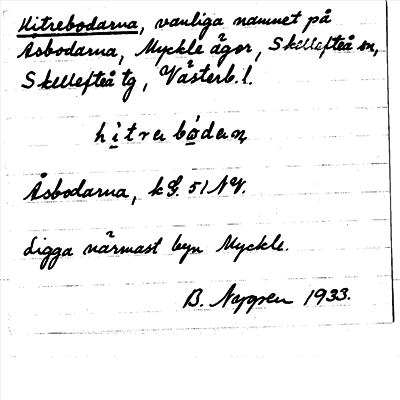 Hitrebodarna, vanliga namnet på
Åsbodarna, Myckle ägor, Skellefteå sn,
Skellefteå tg, Västerb. l.
hi̱trebo̱dan
Åsbodarna, k 51 NV.
Ligga närmast byn Myckle.
B. Nygren 1933.